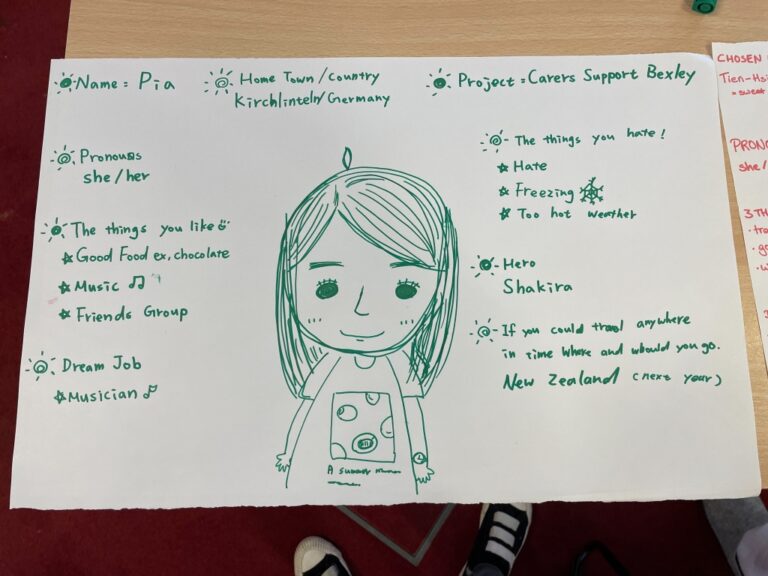 Name = Pia
Home Town / Country
Kirchlinteln/Germany
Project = Carers Support Bexley
Pronouns
she / her
The things you like
Good Food ex, chocolate
Music
Friends Group
Dream Job
Musician
The things you hate!
Hate
Freezing
Too hot weather
Hero
Shakira
If you could travel anywhere
in time where and whould you go.
New Zealand (next year)
A summer
CHOSEN
Tien-Hsi
= sweat
PRONO
she/
3 TH